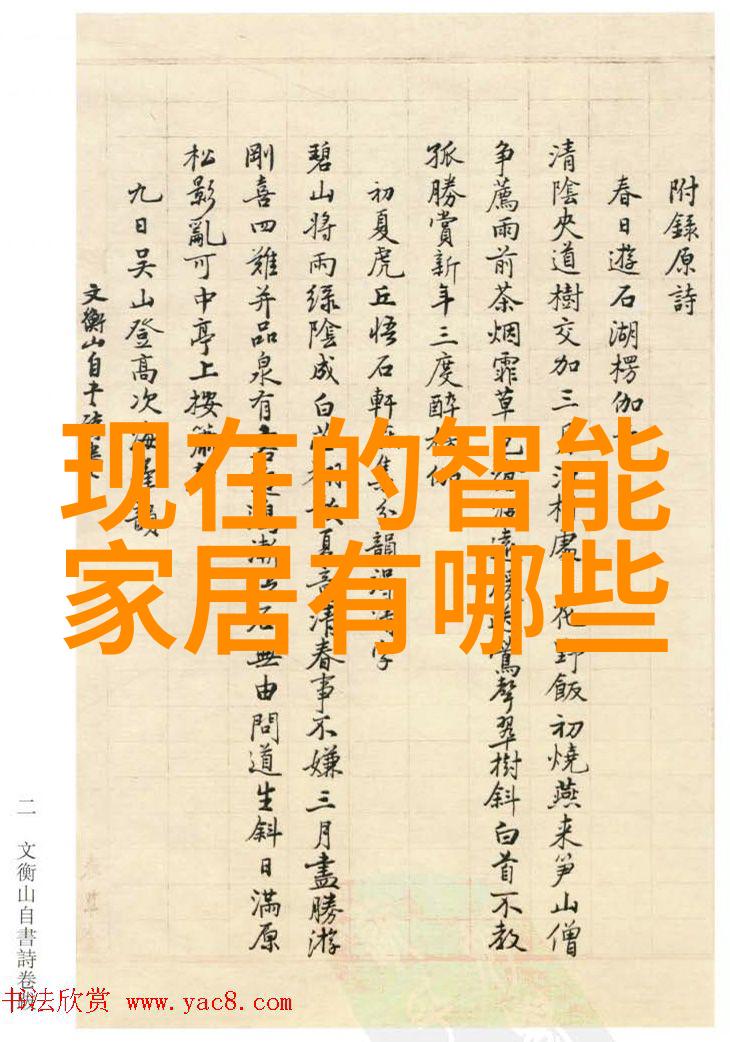 附錄原詩
春日遊石湖楞伽
清陰夾道樹交加三月江村處花野飯初燒燕來筍山僧
爭薦雨前茶烟霏草色遠鶯聲翠樹斜白首不教
孤勝賞新年三度醉
初夏虎丘悟石軒集分韻得
碧山將雨綠陰成白夏意清春事不嫌三月盡勝游
剛喜四難并品泉有無由問道生斜日滿原
松影亂可中亭上按
九日吳山登高次韻
文衡山自
现在的智能
家居有哪些
二 文衡山自書詩卷
书法欣赏 www.yac8.com